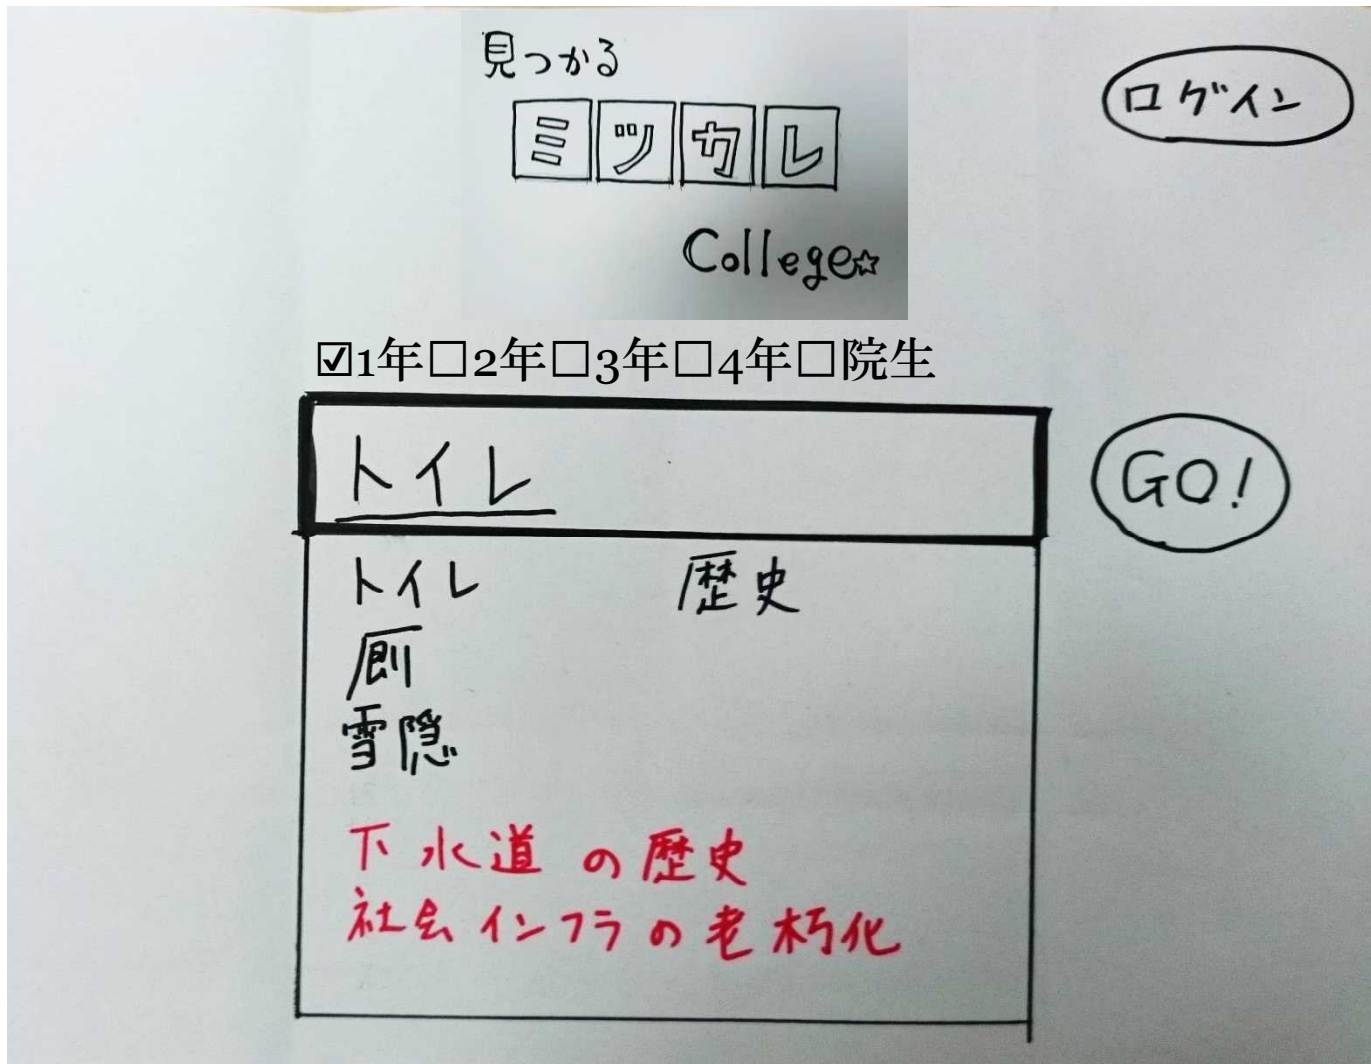 見つかる
ミツカレ
College☆
ログイン
☑1年□2年□3年□4年□院生
トイレ
GO!
トイレ 歴史
厠
雪隠
下水道の歴史
社会インフラの老朽化